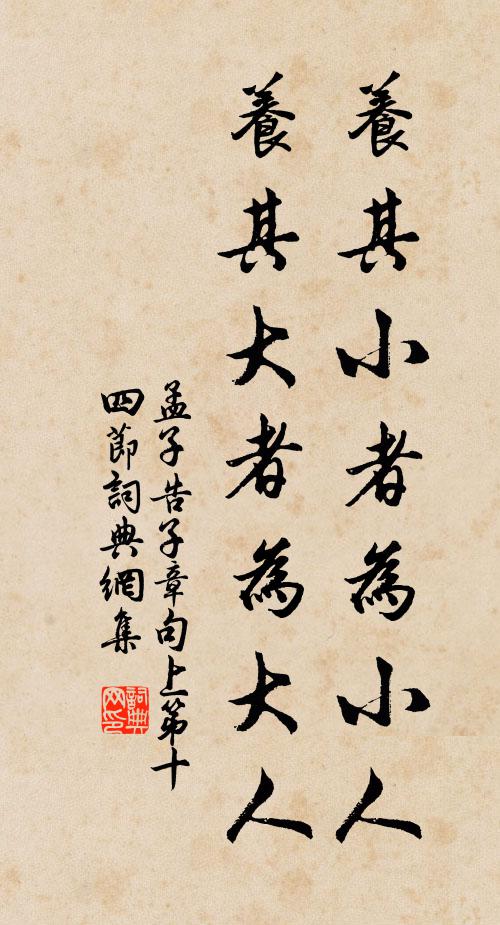 養其小者為小人
養其大者為大人
孟子告子章句上第十
四節詞典網集
詞典網印